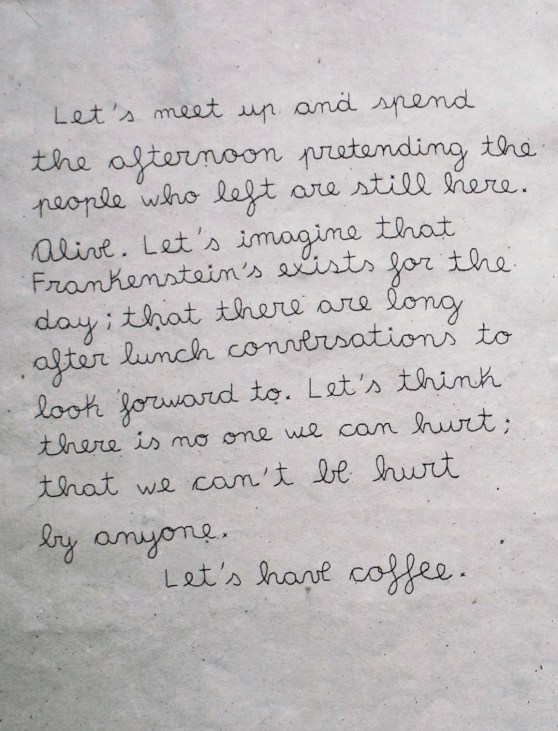 Let's meet up and spend
the afternoon pretending the
people who left are still here.
Alive. Let's imagine that
Frankenstein's exists for the
day; that there are long
after lunch conversations to
look forward to. Let's think
there is no one we can hurt;
that we can't be hurt
by anyone.
Let's have coffee.